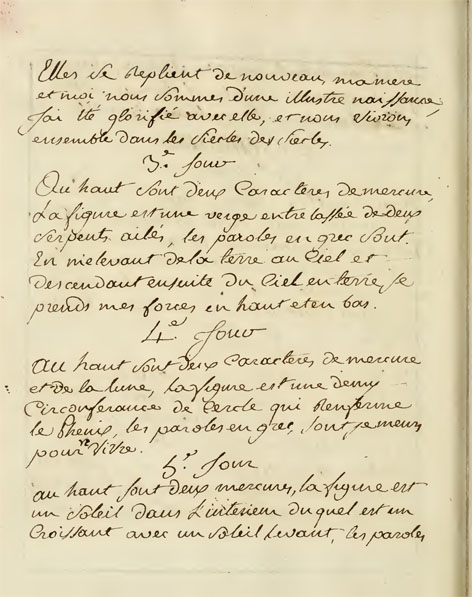 Elles se Replient de nouveau, ma mere
et moi nous sommes d'une illustre naissance,
J'ai été glorifié avec elle, et nous vivrons
ensemble dans les siecles des siecles.
3.e Jour
Au haut sont deux Caracteres de mercure,
La figure est une verge entrelassée de deux
Serpents ailés, les paroles en grec sont.
En m'elevant de la terre au Ciel et
descendant ensuite du Ciel en terre, Je
prends mes forces en haut et en bas.
4.e Jour
Au haut sont deux Caracteres de mercure
et De la lune, la figure est une demy
Circonferance de Cercle qui Renferme
le Phenix, les paroles en grec, sont je meurs
pour re Vivre.
5.e Jour
au haut sont deux mercures, la figure est
un Soleil dans L'interieur du quel est un
Croissant avec un soleil Levant, les paroles